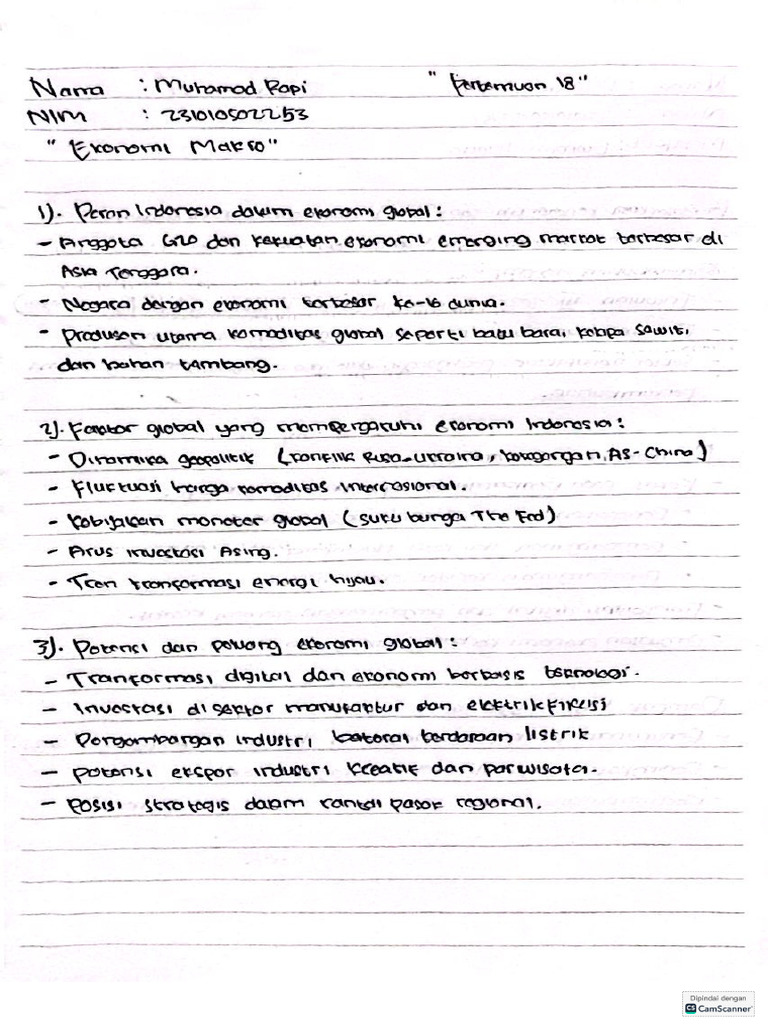 Nama : Muhamad Rapi "Pertemuan 18"
NIM : 231010502253
"Ekonomi Makro"
1). Peran Indonesia dalam ekonomi global :
- Anggota G20 dan kekuatan ekonomi emerging market terbesar di
Asia Tenggara.
- Negara dengan ekonomi terbesar ke-16 dunia.
- Produsen utama komoditas global seperti batu bara, kelapa sawit,
dan bahan tambang.
2). Faktor global yang mempengaruhi ekonomi Indonesia :
- Dinamika geopolitik (Konflik Rusia-Ukraina, ketegangan AS-China)
- Fluktuasi harga komoditas internasional.
- Kebijakan moneter global (Suku bunga The Fed)
- Arus Investasi Asing.
- Tren tranformasi energi hijau.
3). Potensi dan peluang ekonomi global :
- Tranformasi digital dan ekonomi berbasis teknologi.
- Investasi di sektor manufaktur dan elektrikfikasi
- Pengembangan industri baterai kendaraan listrik
- Potensi ekspor industri kreatif dan pariwisata.
- Posisi strategis dalam rantai pasok regional.
Dipindai dengan
CS CamScanner